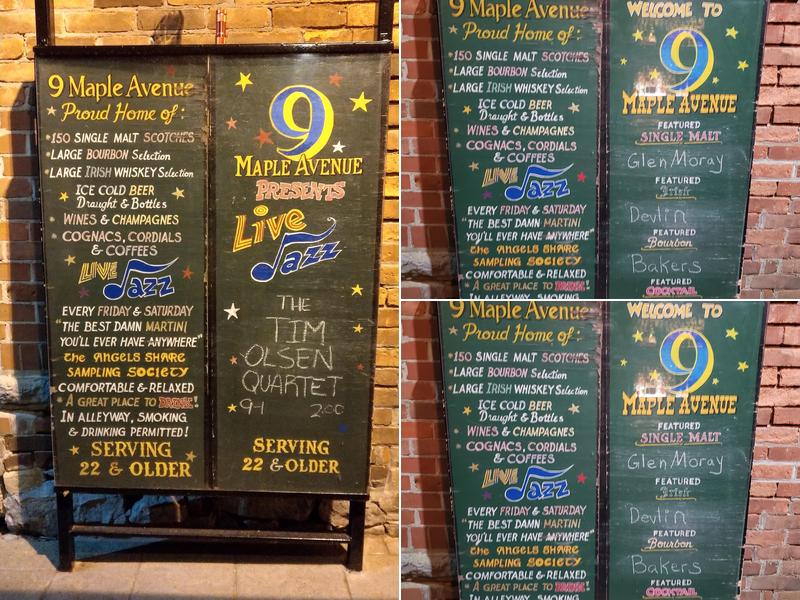 9 Maple Avenue
Proud Home of:
150 SINGLE MALT SCOTCHES
LARGE BOURBON Selection
LARGE IRISH WHISKEY Selection
ICE COLD BEER
Draught & Bottles
WINES & CHAMPAGNES
COGNACS, CORDIALS
& COFFEES
LIVE
Jazz
EVERY FRIDAY & SATURDAY
"THE BEST DAMN MARTINI
YOU'LL EVER HAVE ANYWHERE"
THE ANGELS SHARE
SAMPLING SOCIETY
COMFORTABLE & RELAXED
A GREAT PLACE TO DRINK!
IN ALLEYWAY, SMOKING
& DRINKING PERMITTED!
SERVING
22 & OLDER
9
MAPLE AVENUE
PRESENTS
Live
Jazz
THE
TIM
OLSEN
QUARTET
9-1 2.00
SERVING
22 & OLDER
9 Maple Avenue
Proud Home of:
150 SINGLE MALT SCOTCHES
LARGE BOURBON Selection
LARGE IRISH WHISKEY Selection
ICE COLD BEER
Draught & Bottles
WINES & CHAMPAGNES
COGNACS, CORDIALS
& COFFEES
LIVE
Jazz
EVERY FRIDAY & SATURDAY
"THE BEST DAMN MARTINI
YOU'LL EVER HAVE ANYWHERE"
THE ANGELS SHARE
SAMPLING SOCIETY
COMFORTABLE & RELAXED
A GREAT PLACE TO DRINK!
IN ALLEYWAY, SMOKING
WELCOME TO
9
MAPLE AVENUE
FEATURED
SINGLE MALT
Glen Moray
FEATURED
Irish
Devlin
FEATURED
Bourbon
Bakers
FEATURED
COCKTAIL
9 Maple Avenue
Proud Home of:
150 SINGLE MALT SCOTCHES
LARGE BOURBON Selection
LARGE IRISH WHISKEY Selection
ICE COLD BEER
Draught & Bottles
WINES & CHAMPAGNES
COGNACS, CORDIALS
& COFFEES
LIVE
Jazz
EVERY FRIDAY & SATURDAY
"THE BEST DAMN MARTINI
YOU'LL EVER HAVE ANYWHERE"
THE ANGELS SHARE
SAMPLING SOCIETY
COMFORTABLE & RELAXED
A GREAT PLACE TO DRINK!
IN ALLEYWAY, SMOKING
WELCOME TO
9
MAPLE AVENUE
FEATURED
SINGLE MALT
Glen Moray
FEATURED
Irish
Devlin
FEATURED
Bourbon
Bakers
FEATURED
COCKTAIL